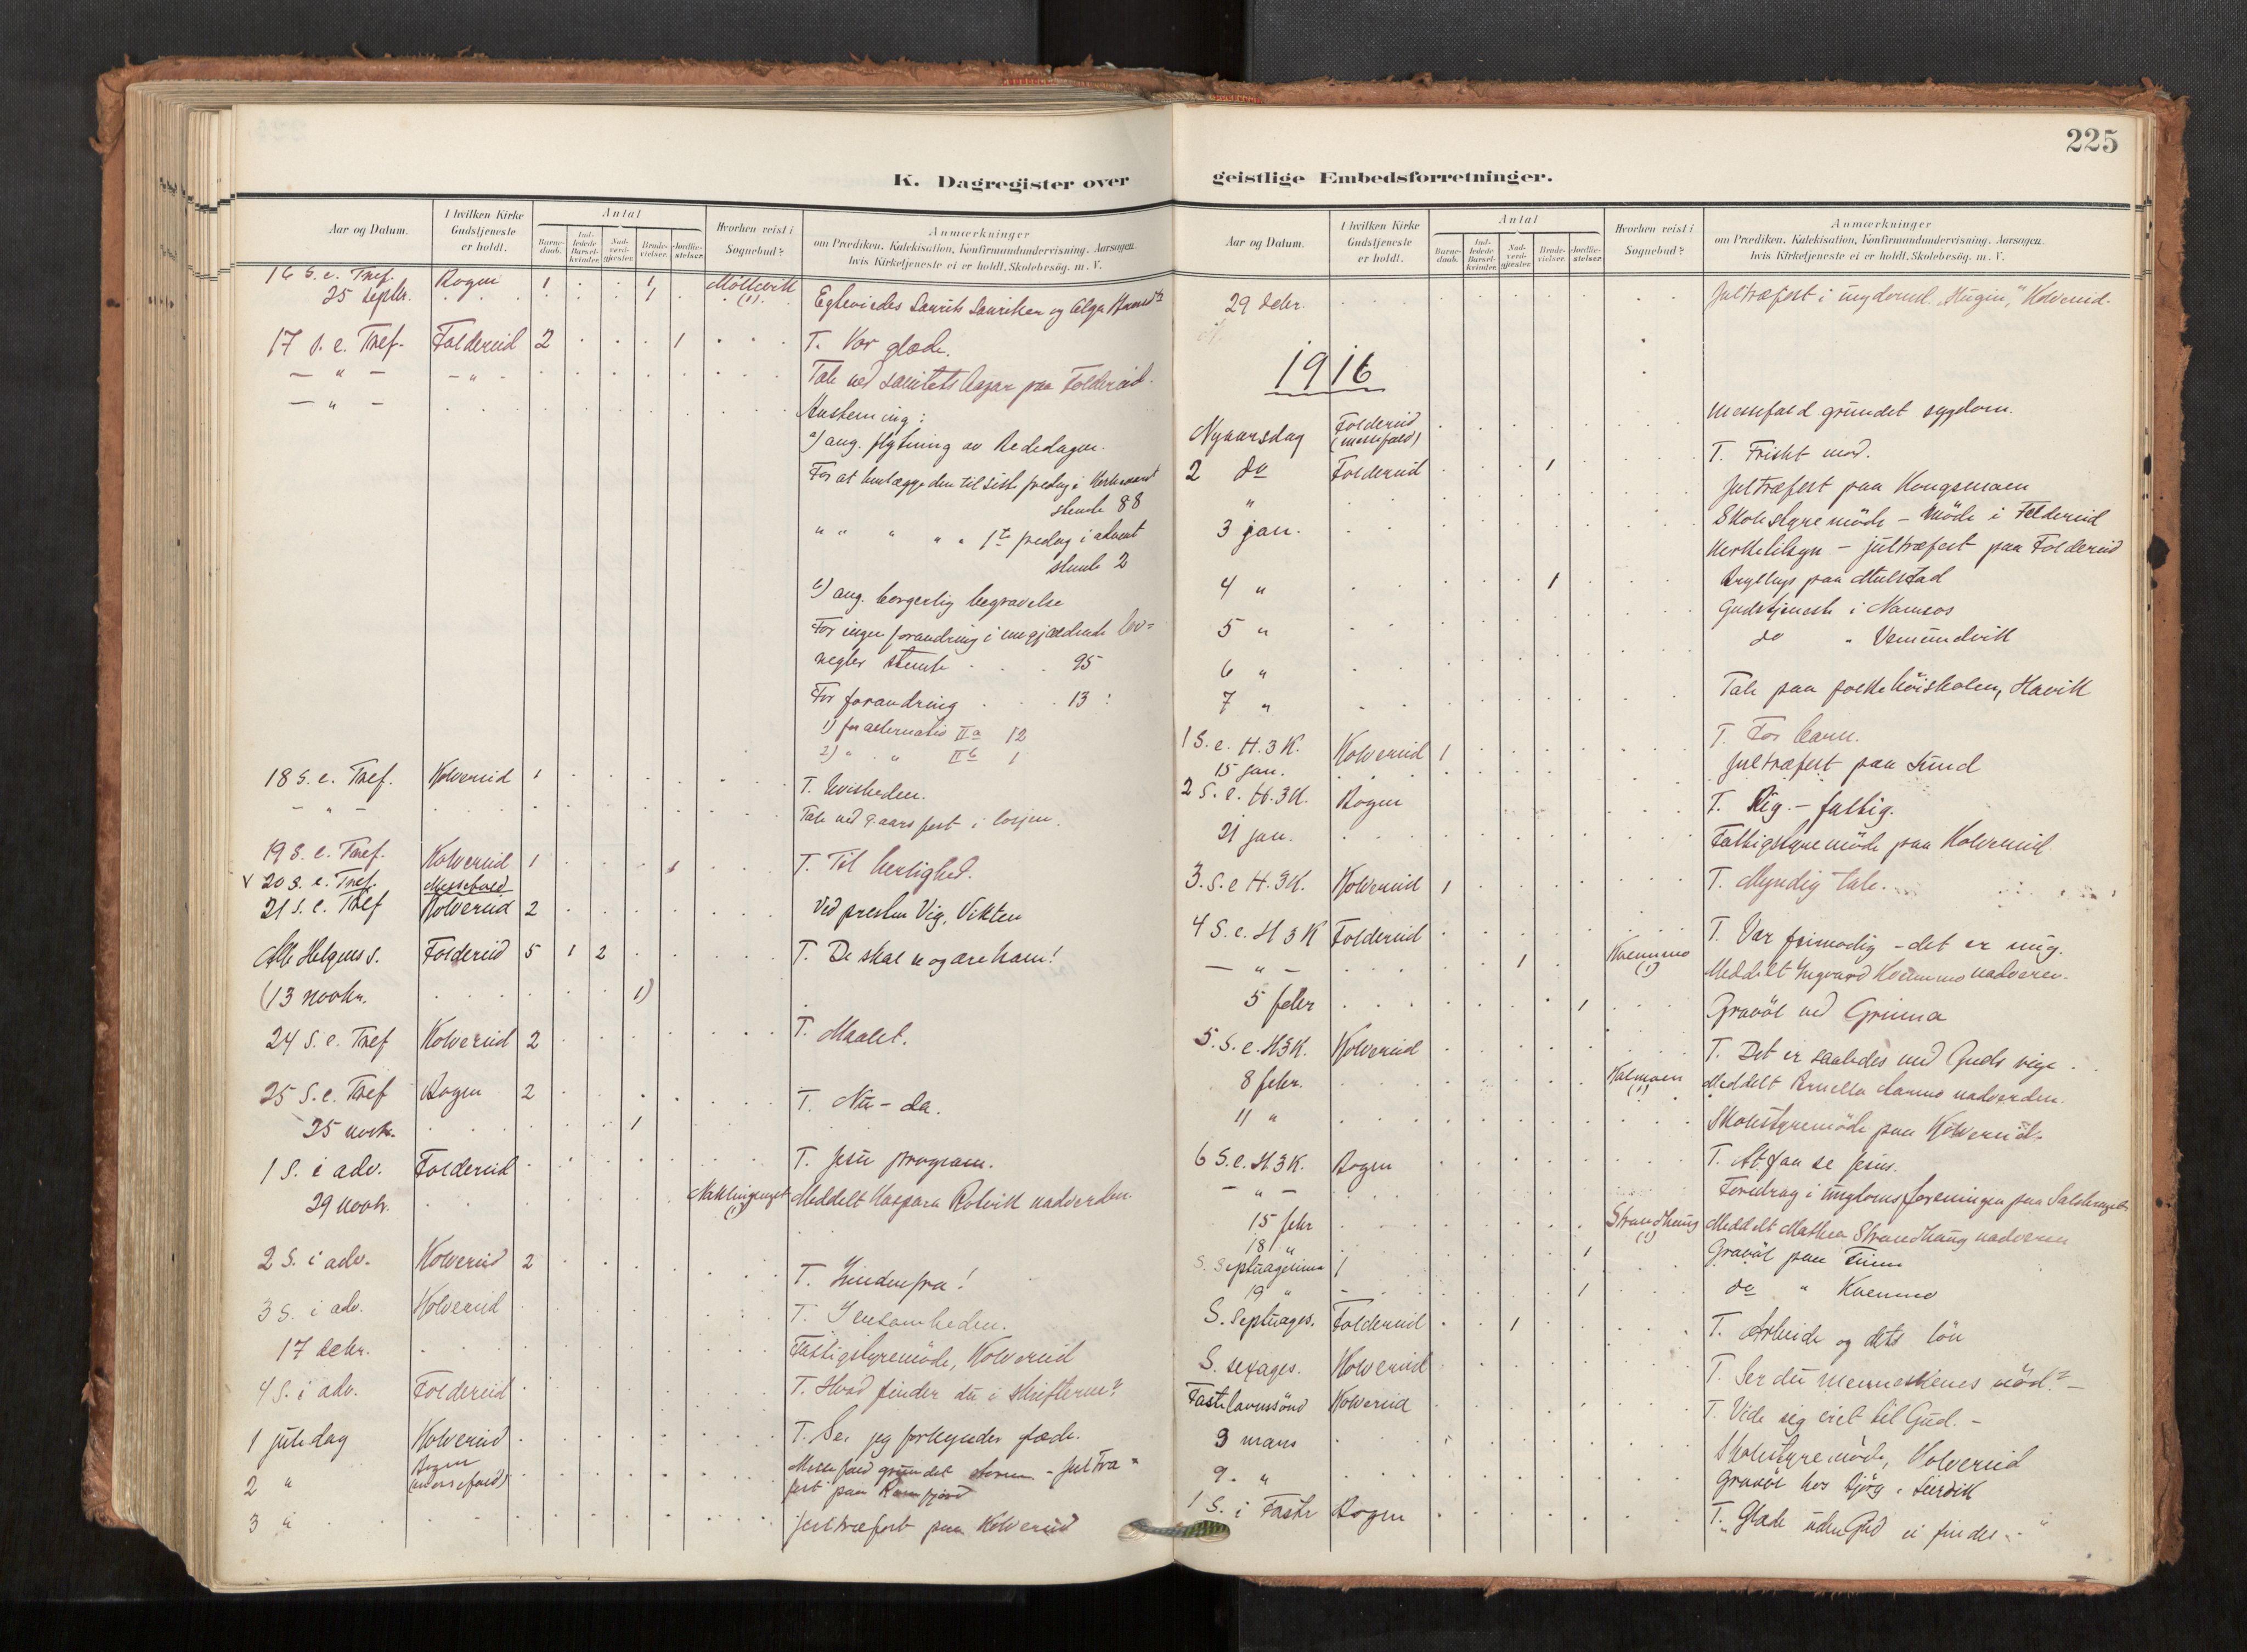 225
K. Dagregister over geistlige Embedsforretninger.
Aar og Datum.
I hvilken Kirke Gudstjeneste er holdt.
Antal
Barnedaab.
Indledede Barselkvinder.
Nadverdgjæster.
Brudevielser.
Jordfæstelser.
Hvorhen reist i Sognebud?
Anmærkninger
om Prædiken, Katekisation, Konfirmandundervisning, Aarsagen,
hvis Kirketjeneste ei er holdt, Skolebesøg. m. V.
16 S. e. Tref. Bogen 1 1
25 septbr. 1 (1)
17 s. e. Tref. Foldereid 2 1 T. Vor glæde.
— " — — " — Tale ved sanitetsbazar paa Foldereid.
— " —
a) ang. flytning av Bededagen.
For at henlægge den til siste fredag i
stemte 88
" " " " " 1ste fredag i advent
stemte 2
b) ang. borgerlig begravelse
For ingen forandring i nugjældende lov-
regler stemte 95
For forandring 13 :
1) for alternativ IIa 12
2) " " IIb 1
18 S. e. Tref. Kolvereid 1 T. Uvisheden.
— " — Tale ved 9. aars fest i losjen.
19 S. e. Tref. Kolvereid 1 1 T. Til herlighed.
V 20 S. e. Tref. Messefald
21 S. e. Tref Kolvereid 2 Ved presten Vig, Vikten
Alle Helgens s. Foldereid 5 1 2 T. De skal se og ære ham!
(13 novbr. 1)
24 S. e. Tref Kolvereid 2 T. Maalet.
25 S. e. Tref Bogen 2 T. Nu - da.
25 novbr. 1
1 S. i adv. Foldereid T. Jesu program.
29 novbr. (1) Meddelt Kaspara Rotvik nadverden
2 S. i adv. Kolvereid 2
3 S. i adv. Kolvereid T. I ensomheden.
17 decbr. Fattigstyremøde, Kolvereid
4 S. i adv. Foldereid T. Hvad finder du i skrifterne?
1 juledag Kolvereid T. Se, jeg forkynder glæde.
2 " Bogen (messefald) Messefald grundet storm. - Juletræ-
fest paa
3 " Juletræfest paa Kolvereid
Aar og Datum.
I hvilken Kirke Gudstjeneste er holdt.
Antal
Barnedaab.
Indledede Barselkvinder.
Nadverdgjæster.
Brudevielser.
Jordfæstelser.
Hvorhen reist i Sognebud?
Anmærkninger
om Prædiken, Katekisation, Konfirmandundervisning, Aarsagen,
hvis Kirketjeneste ei er holdt, Skolebesøg. m. V.
29 decbr. Juletræfest i ungdomsl. "Hugin," Kolvereid.
1916
Nyaarsdag Foldereid (messefald) Messefald grundet sygdom.
2 do Foldereid 1 T. Friskt mod.
" Juletræfest paa Kongsmoen
3 jan. Skolestyremøde - Møde i Foldereid
Kirketilsyn - juletræfest paa Foldereid
4 " 1 Bryllup paa Mulstad
5 " Gudstjeneste i Namsos
6 " do " Vemundvik
7 " Tale paa folkehøiskolen, Havik
1 S. e. H. 3 K. Kolvereid 1 T. For barn.
15 jan. Juletræfest paa Lund
2 S. e. H. 3 K. Bogen T. Rig - fattig.
21 jan. Fattigstyremøde paa Kolvereid
3. S. e H. 3 K. Kolvereid 1 T. Myndig tale.
4 S. e. H 3 K Foldereid T. Vær frimodig - det er mig.
— " — 1 Kvemmo (1) Meddelt Ingvard Kvemmo nadverden.
5 febr 1 Gravøl ved Grinna
5. S. e. H3K. Kolvereid T. Det er saaledes med Guds rige
8 febr. Kalmoen (1) Meddelt nadverden.
11 " Skolestyremøde paa Kolvereid.
6 S. e. H. 3 K. Bogen T. At faa se Jesus.
— " — Foredrag i ungdomsforeningen paa
15 febr Strandhaug (1) Meddelt Mathea Strandhaug nadverden
18 " 1 Gravøl paa
S. Septuagesima 1
19 " 1 do " Kvemmo
S. Septuages. Foldereid 1 T. Arbeide og dets løn
S. sexages. Kolvereid T. Ser du menneskenes nød? -
Fastelavnssønd Kolvereid T. Vide sig viet til Gud. -
3 mars Skolestyremøde, Kolvereid
9. " Gravøl hos
1 S. i Faste Bogen T. "Glæde uden Gud ei findes -"